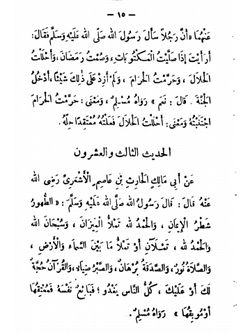 — ١٥ —
عَنْهُمَا « أَنَّ رَجُلًا سَأَلَ رَسُولَ اللهِ صَلَّى اللهُ عَلَيْهِ وَسَلَّمَ فَقَالَ :
أَرَأَيْتَ إِذَا صَلَّيْتُ الْمَكْتُوبَاتِ ، وَصُمْتُ رَمَضَانَ ، وَأَحْلَلْتُ
الْحَلَالَ ، وَحَرَّمْتُ الْحَرَامَ ، وَلَمْ أَزِدْ عَلَى ذَلِكَ شَيْئًا ، أَأَدْخُلُ
الْجَنَّةَ . قَالَ : نَعَمْ » رَوَاهُ مُسْلِمٌ ، وَمَعْنَى : حَرَّمْتُ الْحَرَامَ
اجْتَنَبْتُهُ وَمَعْنَى : أَحْلَلْتُ الْحَلَالَ فَعَلْتُهُ مُعْتَقِدًا حِلَّهُ .
الحديث الثالث والعشرون
عَنْ أَبِي مَالِكٍ الْحَارِثِ بْنِ عَاصِمٍ الْأَشْعَرِيِّ رَضِيَ اللهُ
عَنْهُ : قَالَ : قَالَ رَسُولُ اللهِ صَلَّى اللهُ عَلَيْهِ وَسَلَّمَ : « الطُّهُورُ
شَطْرُ الْإِيمَانِ ، وَالْحَمْدُ لِلهِ تَمْلَأُ الْمِيزَانَ ، وَسُبْحَانَ اللهِ
وَالْحَمْدُ لِلهِ ، تَمْلَآنِ أَوْ تَمْلَأُ مَا بَيْنَ السَّمَاءِ وَالْأَرْضِ ،
وَالصَّلَاةُ نُورٌ ، وَالصَّدَقَةُ بُرْهَانٌ ، وَالصَّبْرُ ضِيَاءٌ ، وَالْقُرْآنُ حُجَّةٌ
لَكَ أَوْ عَلَيْكَ ، كُلُّ النَّاسِ يَغْدُو : فَبَائِعٌ نَفْسَهُ فَمُعْتِقُهَا
أَوْ مُوبِقُهَا » رَوَاهُ مُسْلِمٌ .